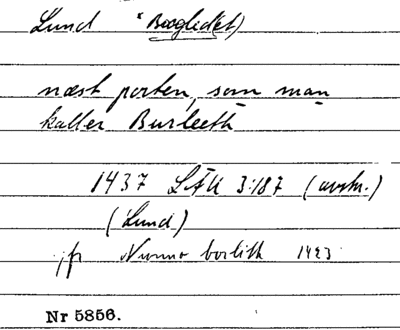 Lund *Borgled(et)
næst porten, som man
kaller Burleeth
1437 LÄU 3:187 (avskr.)
(Lund)
jfr Nunno borlith 1423
Nr 5856.